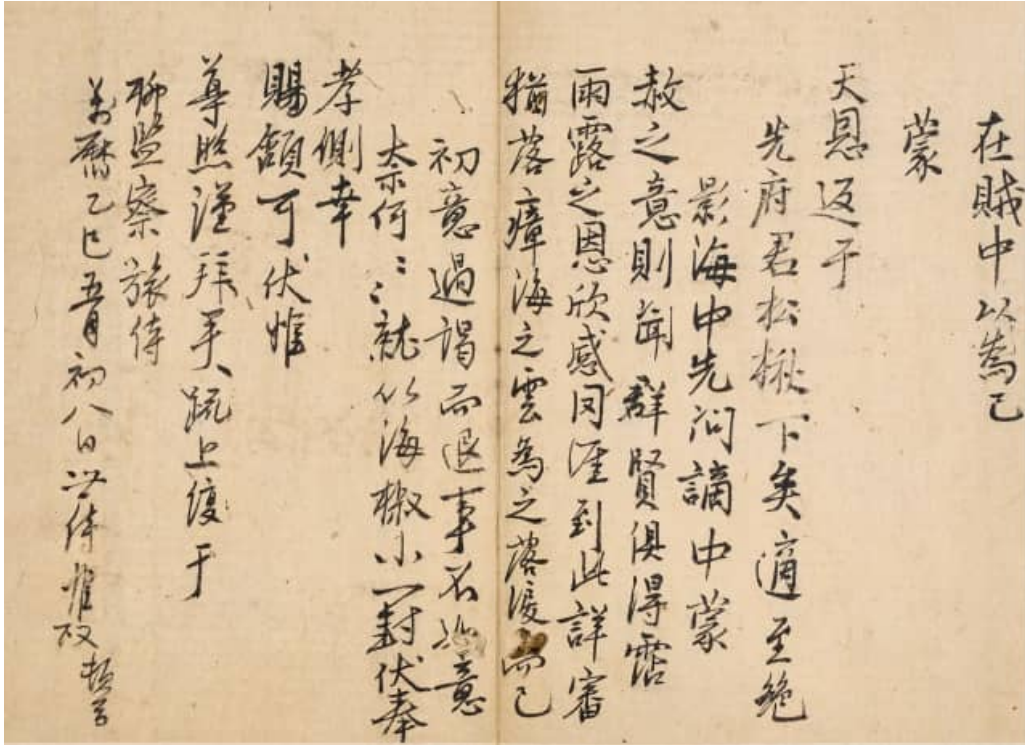 在賊中以爲已
蒙
天恩返于
先府君松楸下矣適至絶
影海中先問謫中蒙
赦之意則聞群賢俱得霑
雨露之恩欣感罔涯到此詳審
猶落瘴海之雲爲之落淚而已
初意過謁而退事不如意
奈何〻就以海椒小一封伏奉
孝側幸
賜領可伏惟
尊照謹拜手疏上復于
柳監察旅侍
万曆乙巳五月初八日 侍 惟政 頓首